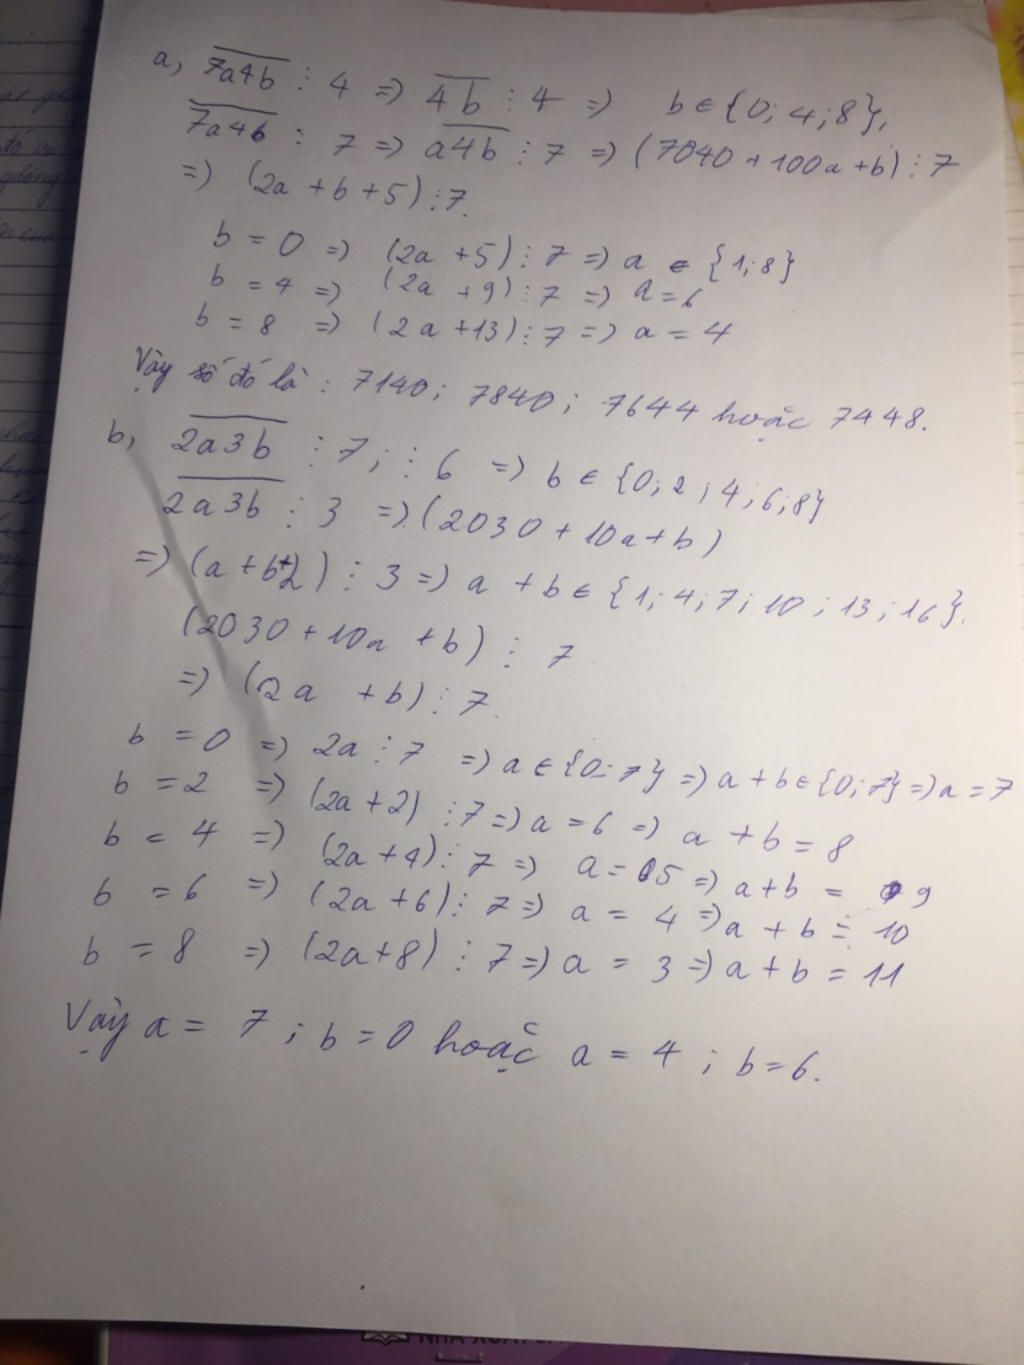 a, 7a4b ⋮ 4 => 4b ⋮ 4 => b ∈ {0; 4; 8},
7a4b ⋮ 7 => a4b ⋮ 7 => (7040 + 100a + b) ⋮ 7
=> (2a + b + 5) ⋮ 7.
b = 0 => (2a + 5) ⋮ 7 => a ∈ {1; 8}
b = 4 => (2a + 9) ⋮ 7 => a = 6
b = 8 => (2a + 13) ⋮ 7 => a = 4
Vậy số đó là : 7140; 7840; 7644 hoặc 7448.
b, 2a3b ⋮ 7; ⋮ 6 => b ∈ {0; 2; 4; 6; 8}
2a3b ⋮ 3 => (2030 + 10a + b)
=> (a + b + 2) ⋮ 3 => a + b ∈ {1; 4; 7; 10; 13; 16}.
(2030 + 10a + b) ⋮ 7
=> (2a + b) ⋮ 7.
b = 0 => 2a ⋮ 7 => a ∈ {0; 7} => a + b ∈ {0; 7} => a = 7
b = 2 => (2a + 2) ⋮ 7 => a = 6 => a + b = 8
b = 4 => (2a + 4) ⋮ 7 => a = 5 => a + b = 9
b = 6 => (2a + 6) ⋮ 7 => a = 4 => a + b = 10
b = 8 => (2a + 8) ⋮ 7 => a = 3 => a + b = 11
Vậy a = 7; b = 0 hoặc a = 4; b = 6.